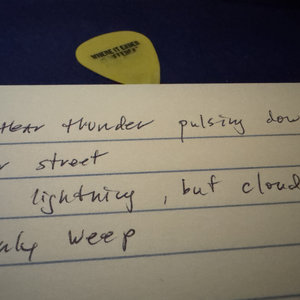 WHERE IT COMES
hear thunder pulsing dow
r street
lightning, but cloud
weep